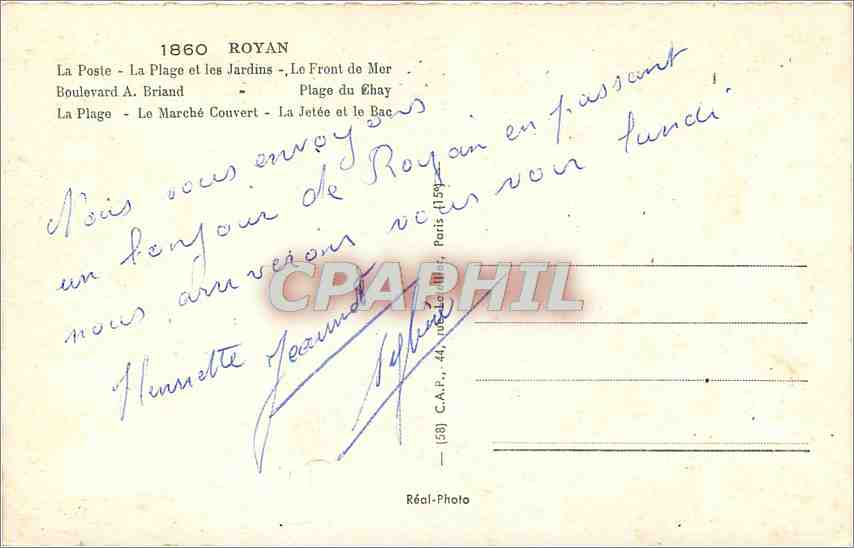 1860 ROYAN
La Poste - La Plage et les Jardins - Le Front de Mer
Boulevard A. Briand - Plage du Chay
La Plage - Le Marché Couvert - La Jetée et le Bac
Nous vous envoyons
un bonjour de Royan en passant
nous arriverions vous voir lundi
Henriette Jeannot
Sylvie
CPAPHIL
(58) C.A.P., 44, rue Letellier, Paris (15e)
Réal-Photo